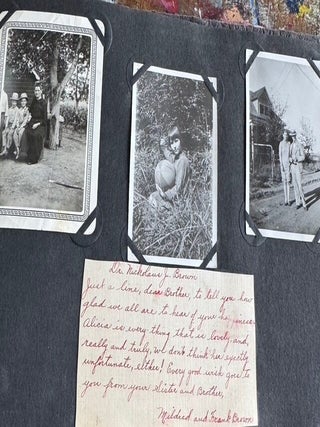 Dr. Nickolaus J. Brown
Just a line, dear Brother, to tell you how
glad we all are to hear of your happiness.
Alicia is every thing that is lovely and,
really and truly, we don't think her exactly
unfortunate, either! Every good wish goes to
you from your Sister and Brother,
Mildred and Frank Brown